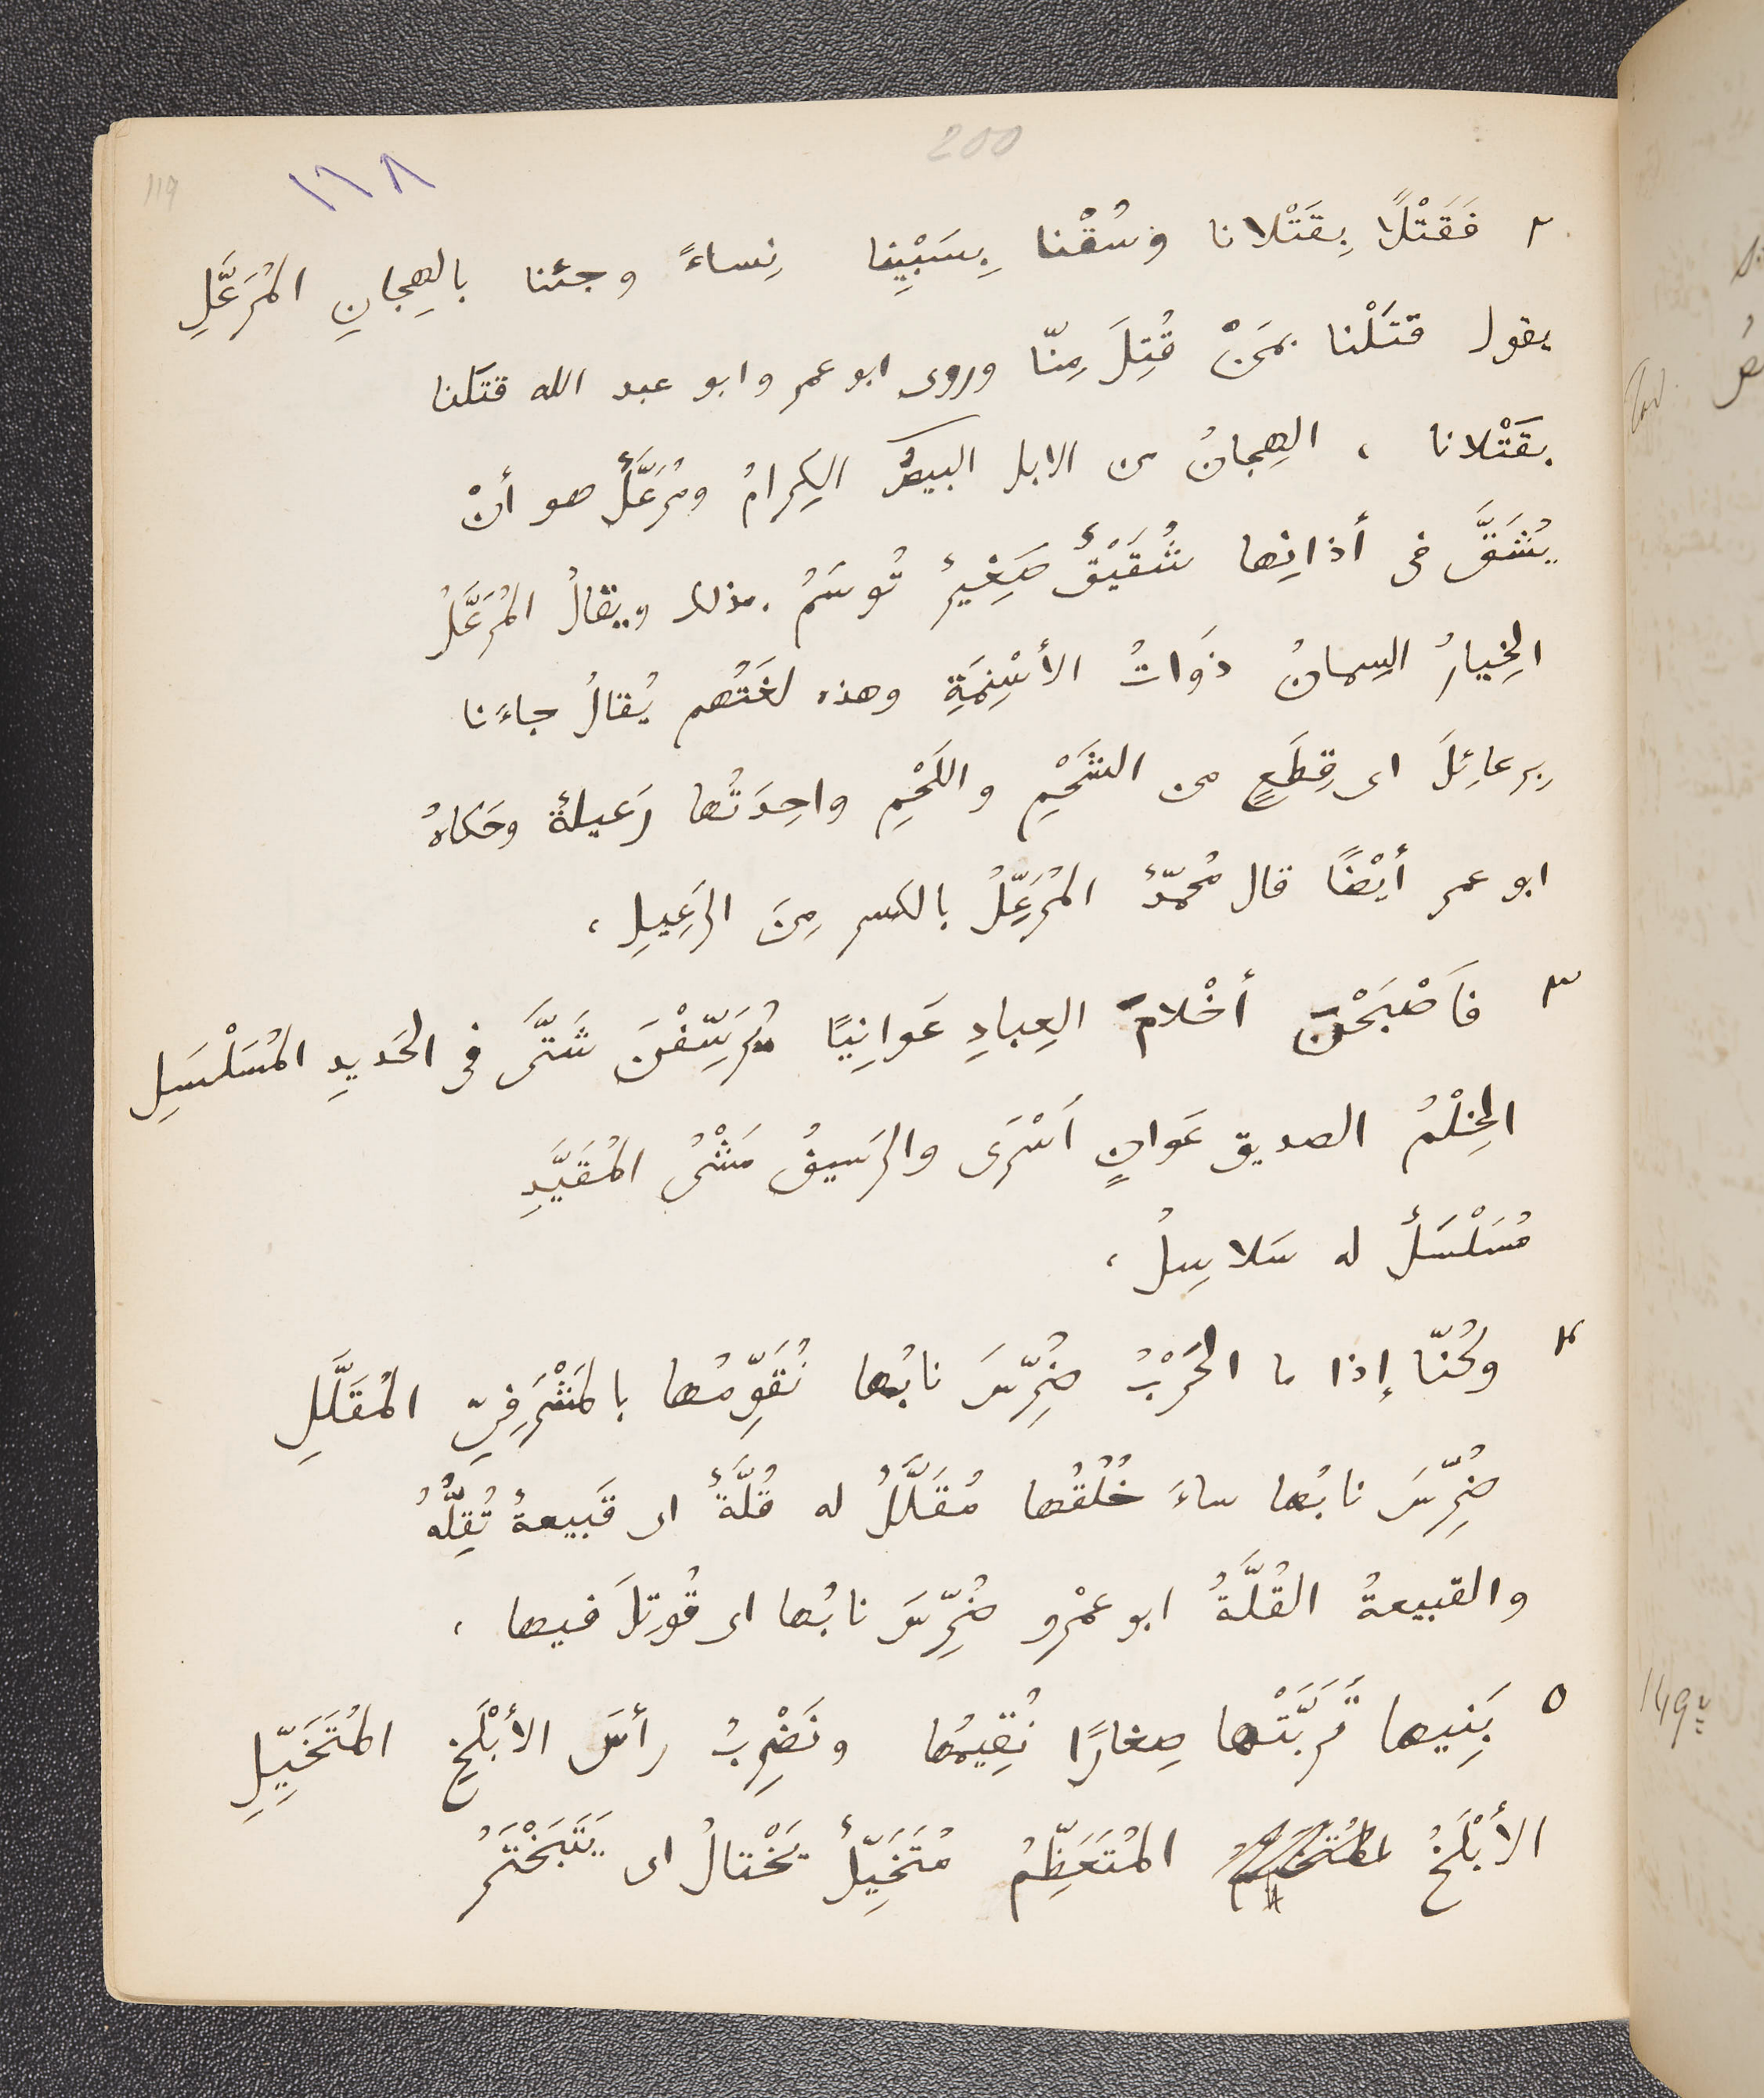 200
١١٨
119
٢ فَقَتْلًا بِقَتْلانا وسُقْنا بِسَبْيِنا نِساءً وجئنا بالهِجانِ المُرَعَّلِ
يقول قتَلْنا بمَنْ قُتِلَ مِنّا وروى ابو عمر وابو عبد الله قتَلنا
بقَتْلانا ، الهِجانُ من الابل البيضُ الكِرامُ ومُرَعَّلٌ هو أنْ
يُشَقَّ فى أذانِها شُقَيْقٌ صَغِيرٌ تُوسَمُ بذلك ويقالُ المُرَعَّلُ
الخِيارُ السِمانُ ذَواتُ الأسْنِمَةِ وهذه لغَتُهم يُقالُ جاءنا
بِرعائِلَ اى قِطَعٍ من الشَحْمِ واللَحْمِ واحِدَتُها رَعيلةٌ وحَكاهُ
ابو عمر أيْضًا قال مُحمّدٌ المُرَعِّلُ بالكسر مِنَ الرَعِيلِ ،
٣ فَأَصْبَحْنَ أخْلامَ العِبادِ عَوانِيًا يُرَسِّفْنَ شَتَّى فى الحَديدِ المُسَلْسَلِ
الخِلْمُ الصديق عَوانٍ اَسْرَى والرَسيفُ مَشْىُ المُقَيَّدِ
مُسَلْسَلٌ له سَلاسِلُ ،
٤ وكُنّا إذا ما الحَرْبُ ضُرِّسَ نابُها نُقَوِّمُها بالمَشْرَفِىِّ المُقَلَّلِ
ضُرِّسَ نابُها ساءَ خُلُقُها مُقَلَّلُ له قُلَّةٌ اى قَبيعةٌ تُقِلُّهُ
والقبيعةُ القُلَّةُ ابو عمْرو ضُرِّسَ نابُها اى قُوتِلَ فيها ،
٥ بَنِيها تَرَبَّتْها صِغارًا نُقِيمُها ونَضْرِبُ رأسَ الأبْلَخِ المُتَخَيِّلِ
الأبْلَخُ المُتَعَظِّمُ مُتَخَيِّلٌ يَخْتالُ اى يَتَبَخْتَرُ
149